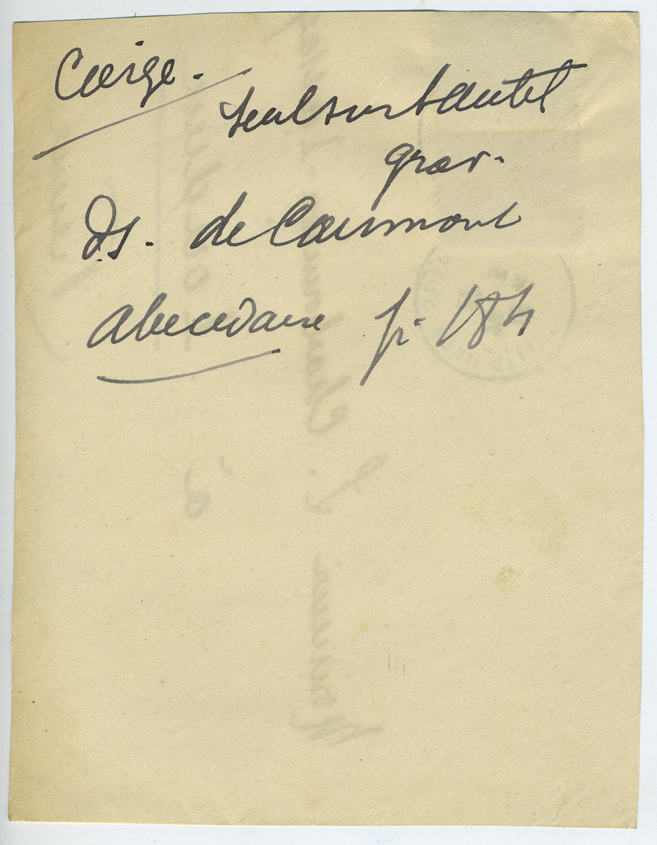 Cierge.
seul sur l'autel
grav.
Ds. de Caumont
Abecedaire p. 184